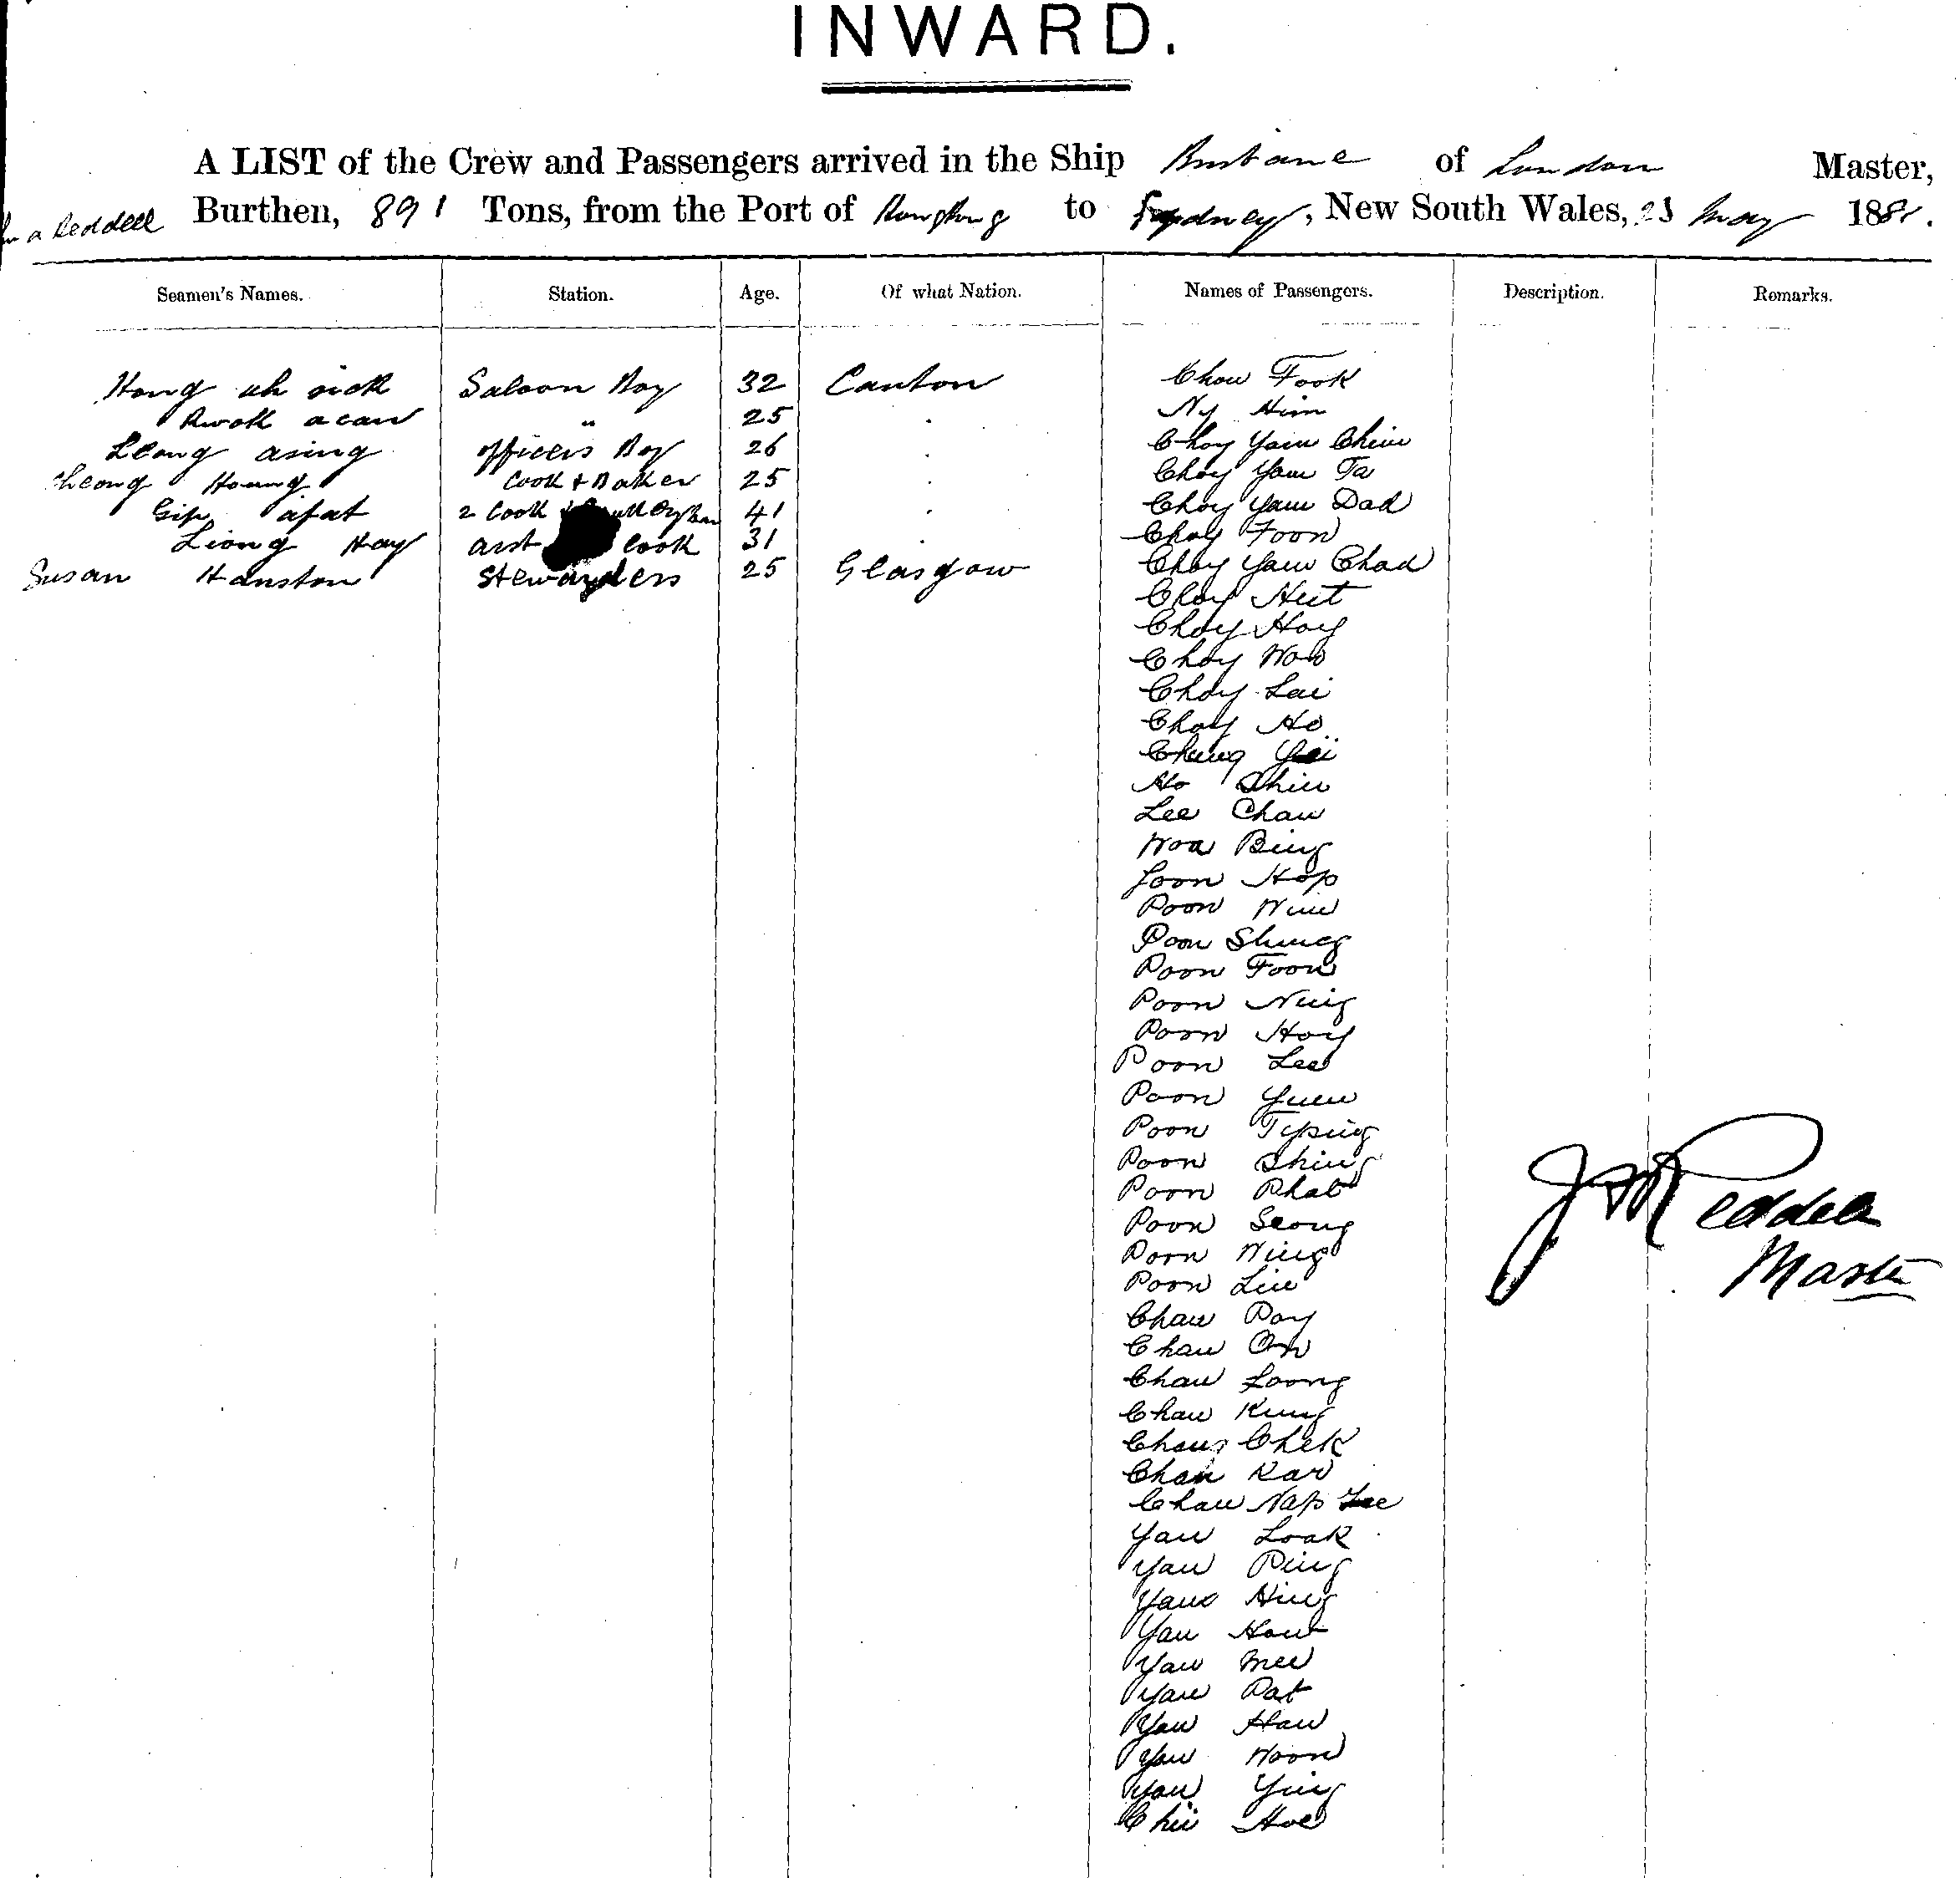 INWARD.
A LIST of the Crew and Passengers arrived in the Ship Brisbane of London Master,
Reddell Burthen, 891 Tons, from the Port of Hongkong to Sydney, New South Wales, 23 May 1881.
Seamen's Names. Station. Age. Of what Nation. Names of Passengers. Description. Remarks.
Hong ah sick Saloon Boy 32 Canton Chow Fook
Kwok acan " 25 . Ny Him
Leong asing officers Boy 26 . Choy Yam Chim
Cheong Houng Cook & Baker 25 . Choy Yam Ta
Gip afat 2 Cook 41 . Choy Yam Dad
Leong Hay asst Cook 31 . Choy Foon
Susan Hanston Stewardess 25 Glasgow Choy Yaw Chad
Choy Hut
Choy Hoy
Choy Wow
Choy Lai
Choy Ho
Chung
Ho Shiu
Lee Chaw
Woa Bing
Loon Hop
Poon Wiu
Poon Shung
Poon Foon
Poon Ning
Poon Hoy
Poon Lee
Poon Yuen
Poon Typing
Poon Shing
Poon Phat
Poon Seong
Poon Wing
Poon Liu
Chaw Poy
Chaw On
Chaw Loong
Chaw Kung
Chaug Chek
Chan Kar
Chau Nap Lee
Yau Loak
Yau Ping
Yaw Hing
Yau How
Yaw Mee
Yaw Pat
Yaw Haw
Yaw Woon
Yaw Ying
Chii Hoe
J A Reddell
Master